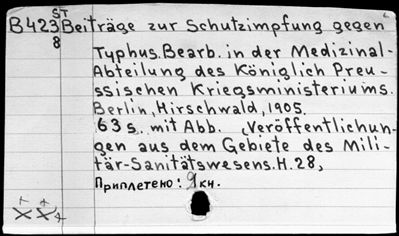 ST
B423 Beiträge zur Schutzimpfung gegen
8
Typhus. Bearb. in der Medizinal-
Abteilung des Königlich Preu-
ssischen Kriegsministeriums.
Berlin, Hirschwald, 1905.
63 s. mit Abb. (Veröffentlichun-
gen aus dem Gebiete des Mili-
tär-Sanitätswesens. H. 28,
Приплетено: 9 кн.